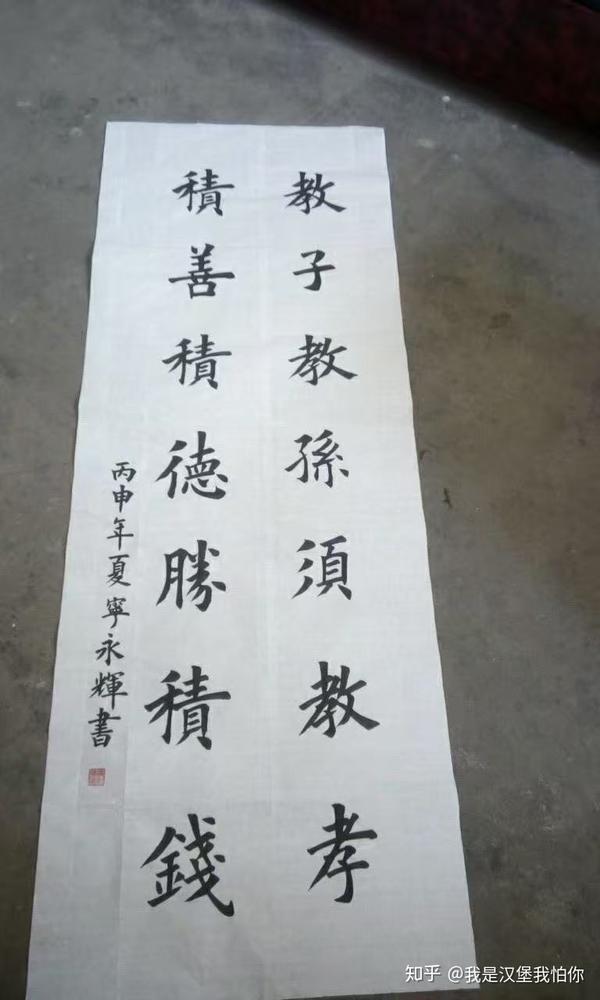 教子教孫須教孝
積善積德勝積錢
丙申年夏寧永輝書
知乎 @我是汉堡我怕你